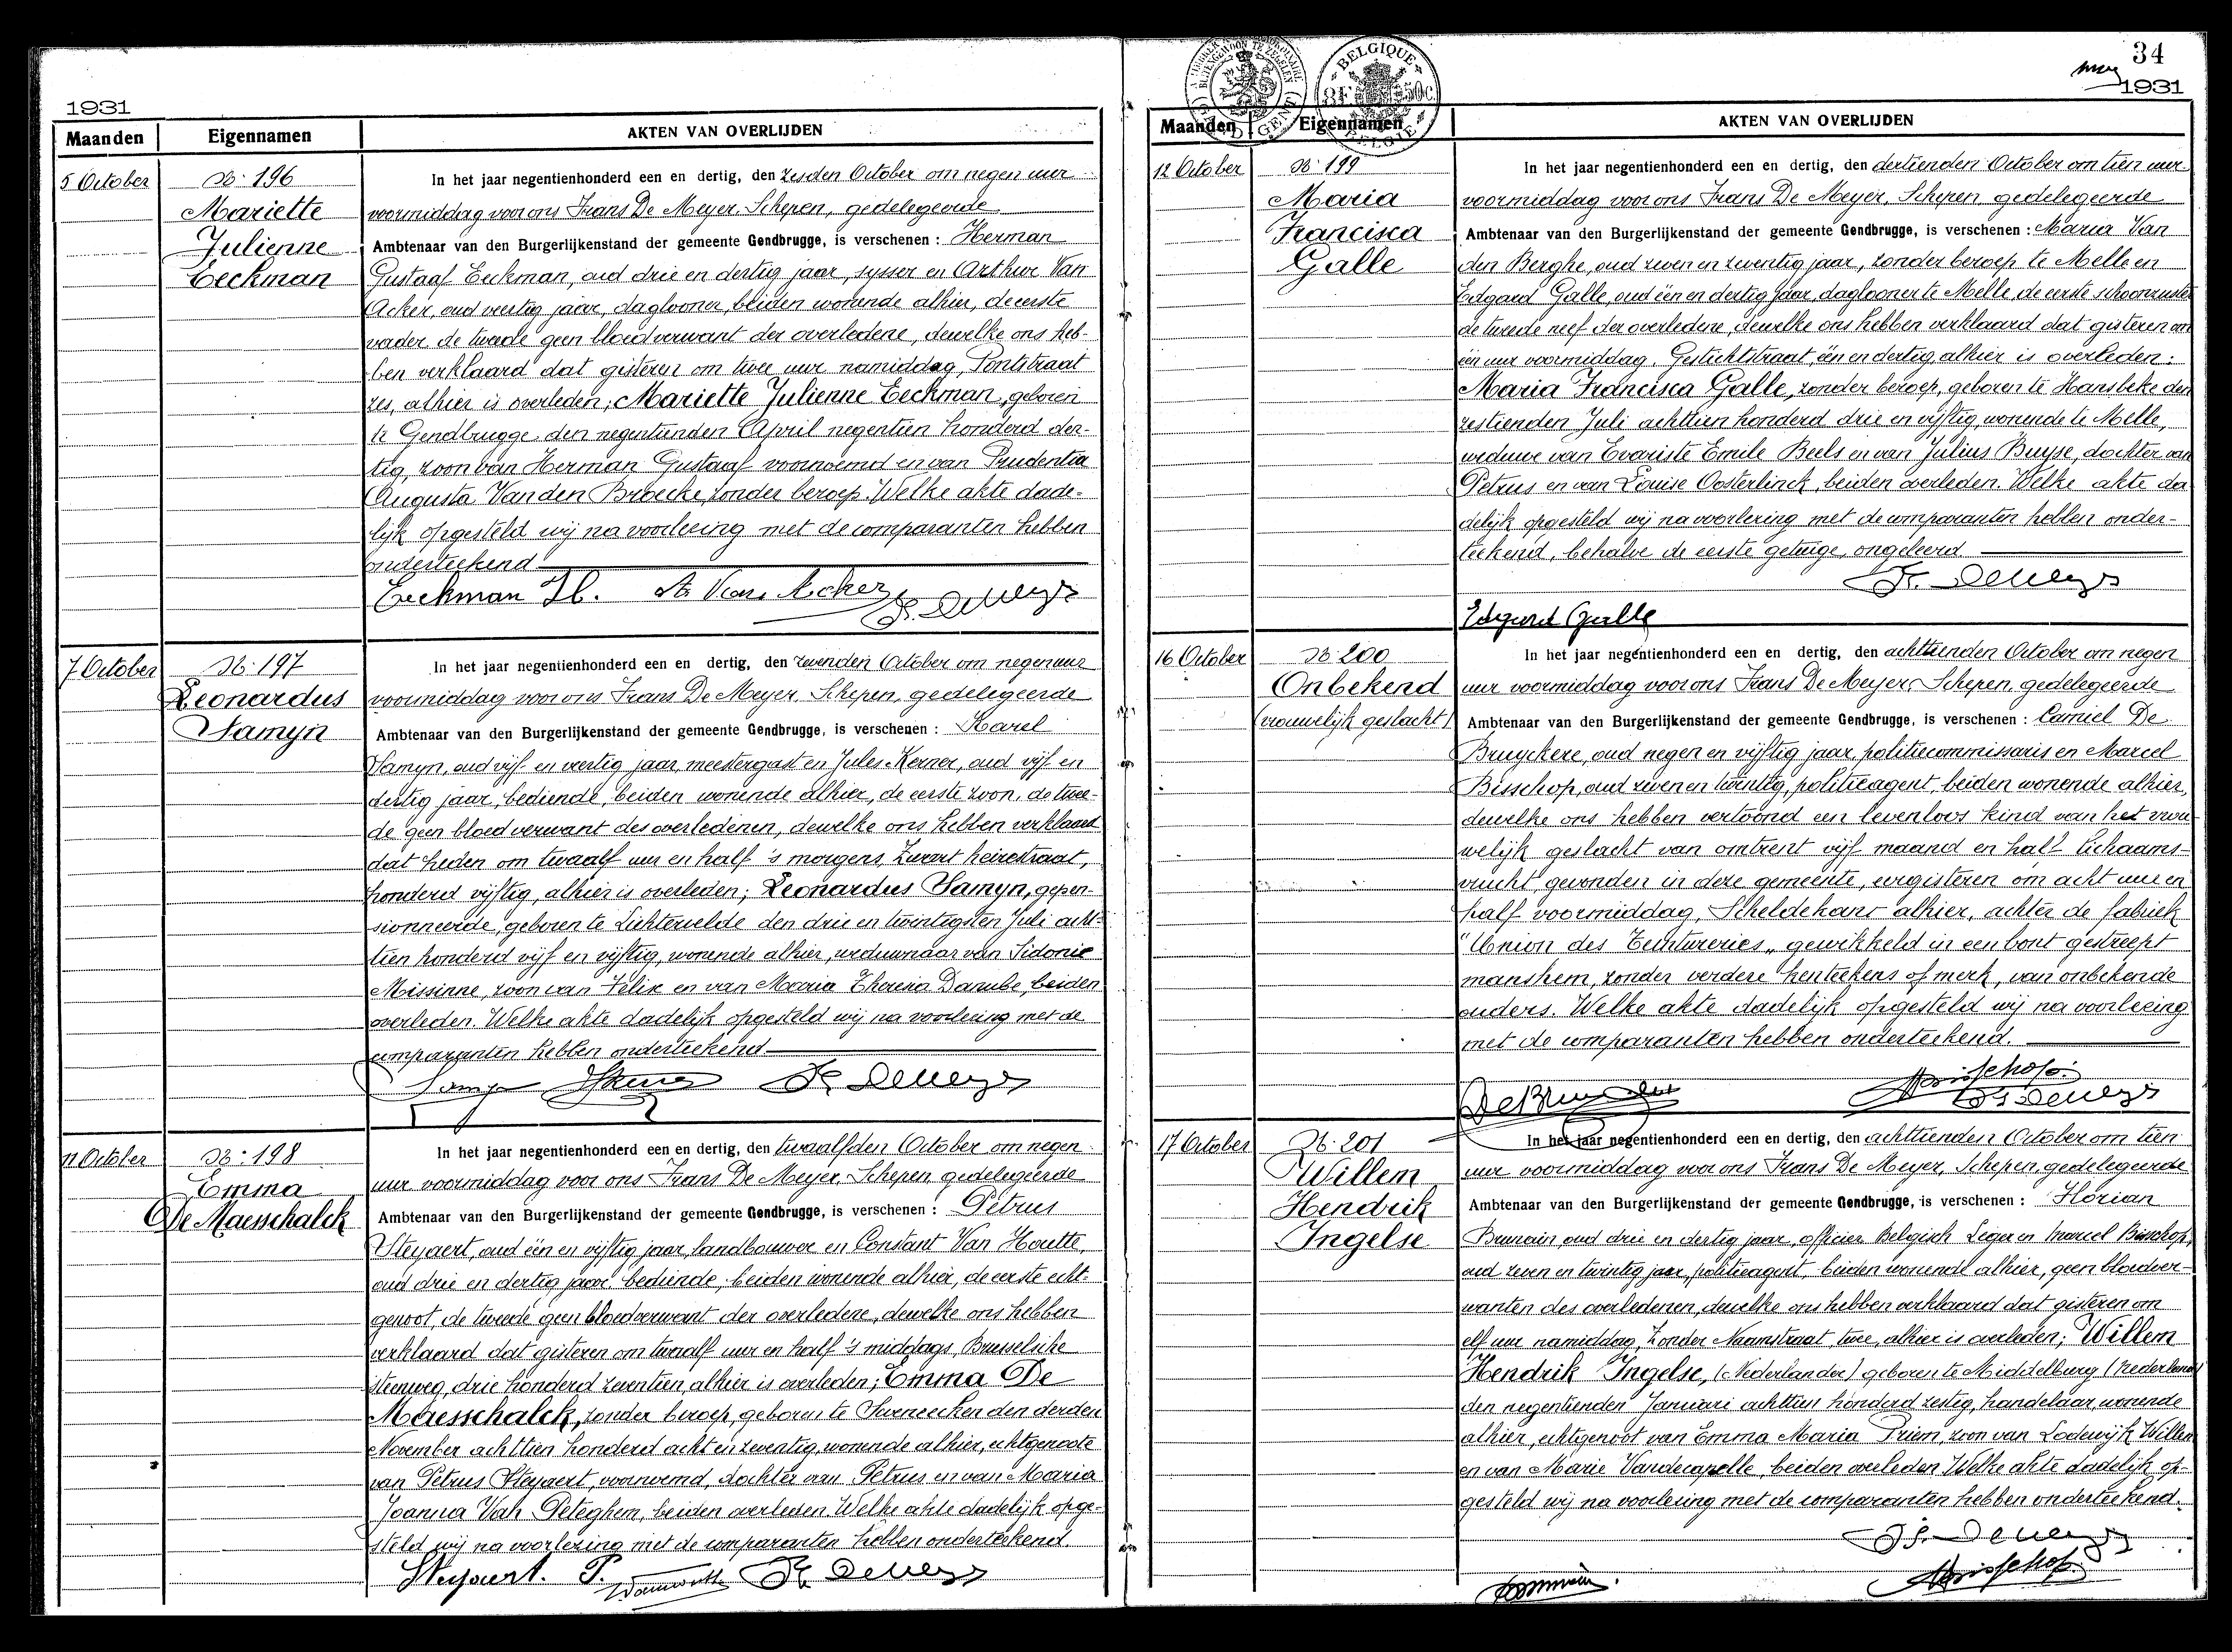 1931
Maanden Eigennamen AKTEN VAN OVERLIJDEN
5 October
No 196
Mariette
Julienne
Eeckman
In het jaar negentienhonderd een en dertig, den zesden October om negen uur
voormiddag voor ons Frans De Meyer, Schepen, gedelegeerde
Ambtenaar van den Burgerlijkenstand der gemeente Gendbrugge, is verschenen : Herman
Gustaaf Eeckman, oud drie en dertig jaar, sjasser en Arthur Van
Acker, oud veertig jaar, daglooner, beiden wonende alhier, de eerste
vader de tweede geen bloedverwant der overledene, dewelke ons heb-
ben verklaard dat gisteren om twee uur namiddag, Pontstraat
zes, alhier is overleden; Mariette Julienne Eeckman, geboren
te Gendbrugge den negentienden April negentien honderd der-
tig, zoon van Herman Gustaaf voornoemd en van Prudentia
Augusta Van den Broecke, zonder beroep. Welke akte dade-
lijk opgesteld wij na voorlezing met de comparanten hebben
onderteekend
Eeckman H. A. Van Acker F. De Meyer
7 October
No 197
Leonardus
Samyn
In het jaar negentienhonderd een en dertig, den zevenden October om negen uur
voormiddag voor ons Frans De Meyer, Schepen, gedelegeerde
Ambtenaar van den Burgerlijkenstand der gemeente Gendbrugge, is verschenen : Karel
Samyn, oud vijf en veertig jaar, meestergast en Jules Kerner, oud vijf en
dertig jaar, bediende, beiden wonende alhier, de eerste zoon, de twee-
de geen bloedverwant des overledenen, dewelke ons hebben verklaard
dat heden om twaalf uur en half 's morgens, Zwart heirestraat,
honderd vijftig, alhier is overleden; Leonardus Samyn, gepen-
sionneerde, geboren te Lichtervelde den drie en twintigsten Juli acht-
tien honderd vijf en vijftig, wonende alhier, weduwnaar van Sidonie
Missinne, zoon van Felix en van Maria Theresia Danube, beiden
overleden. Welke akte dadelijk opgesteld wij na voorlezing met de
comparanten hebben onderteekend
Samyn F. De Meyer
11 October
No 198
Emma
De Maesschalck
In het jaar negentienhonderd een en dertig, den twaalfden October om negen
uur voormiddag voor ons Frans De Meyer, Schepen, gedelegeerde
Ambtenaar van den Burgerlijkenstand der gemeente Gendbrugge, is verschenen : Petrus
Steyaert, oud één en vijftig jaar, landbouwer en Constant Van Houtte,
oud drie en dertig jaar, bediende, beiden wonende alhier, de eerste echt-
genoot, de tweede geen bloedverwant der overledene, dewelke ons hebben
verklaard dat gisteren om twaalf uur en half 's middags, Brusselsche
steenweg, drie honderd zeventien, alhier is overleden; Emma De
Maesschalck, zonder beroep, geboren te den derden
November achttien honderd acht en zeventig, wonende alhier, echtgenoote
van Petrus Steyaert, voornoemd, dochter van Petrus en van Maria
Joanna Van Peteghem, beiden overleden. Welke akte dadelijk opge-
steld wij na voorlezing met de comparanten hebben onderteekend.
Steyaert. P. F. De Meyer
BELGIQUE
3F 50c
BELGIË
34
1931
Maanden Eigennamen AKTEN VAN OVERLIJDEN
12 October
No 199
Maria
Francisca
Galle
In het jaar negentienhonderd een en dertig, den dertienden October om tien uur
voormiddag voor ons Frans De Meyer, Schepen, gedelegeerde
Ambtenaar van den Burgerlijkenstand der gemeente Gendbrugge, is verschenen : Maria Van
den Berghe, oud zeven en zeventig jaar, zonder beroep te Melle en
Edgard Galle, oud één en dertig jaar, daglooner te Melle, de eerste schoonzuster
de tweede neef der overledene, dewelke ons hebben verklaard dat gisteren om
één uur voormiddag, Gestichtstraat, één en dertig, alhier is overleden:
Maria Francisca Galle, zonder beroep, geboren te Hansbeke den
zestienden Juli achttien honderd drie en vijftig, wonende te Melle,
weduwe van Evariste Emile Beels en van Julius Buyse, dochter van
Petrus en van Louise Oosterlinck, beiden overleden. Welke akte da-
delijk opgesteld wij na voorlezing met de comparanten hebben onder-
teekend, behalve de eerste getuige, ongeleerd
F. De Meyer
Edgard Galle
16 October
No 200
Onbekend
(vrouwelijk geslacht)
In het jaar negentienhonderd een en dertig, den achttienden October om negen
uur voormiddag voor ons Frans De Meyer, Schepen, gedelegeerde
Ambtenaar van den Burgerlijkenstand der gemeente Gendbrugge, is verschenen : Camiel De
Bruyckere, oud negen en vijftig jaar, politiecommissaris en Marcel
Bisschop, oud zeven en twintig, politieagent, beiden wonende alhier,
dewelke ons hebben vertoond een levenloos kind van het vrou-
welijk geslacht van omtrent vijf maand en half lichaams-
vrucht, gevonden in deze gemeente, eergisteren om acht uur en
half voormiddag, Scheldekant alhier, achter de fabriek
"Union des Teintureries" gewikkeld in een bont gestreept
manshem, zonder verdere kenteekens of merk, van onbekende
ouders. Welke akte dadelijk opgesteld wij na voorlezing
met de comparanten hebben onderteekend.
De Bruyckere M. Bisschop
F. De Meyer
17 October
No 201
Willem
Hendrik
Ingelse
In het jaar negentienhonderd een en dertig, den achttienden October om tien
uur voormiddag voor ons Frans De Meyer, Schepen, gedelegeerde
Ambtenaar van den Burgerlijkenstand der gemeente Gendbrugge, is verschenen : Florian
Brunain, oud drie en dertig jaar, officier Belgisch Leger en Marcel Bisschop,
oud zeven en twintig jaar, politieagent, beiden wonende alhier, geen bloedver-
wanten des overledenen, dewelke ons hebben verklaard dat gisteren om
elf uur namiddag, Zonder Naamstraat, twee, alhier is overleden; Willem
Hendrik Ingelse, (Nederlander) geboren te Middelburg (Nederland)
den negentienden Januari achttien honderd zestig, handelaar, wonende
alhier, echtgenoot van Emma Maria Priem, zoon van Lodewijk Willem
en van Marie Vandecapelle, beiden overleden. Welke akte dadelijk op-
gesteld wij na voorlezing met de comparanten hebben onderteekend.
F. De Meyer
M. Bisschop